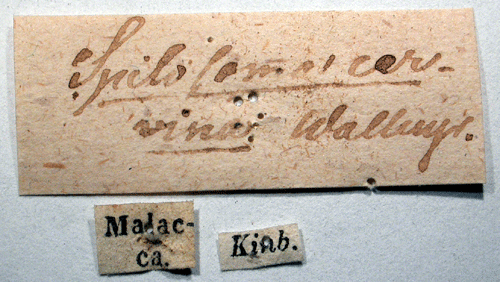 Spilosoma cer-
vina. Wallengr.
Malac-
ca.
Kinb.